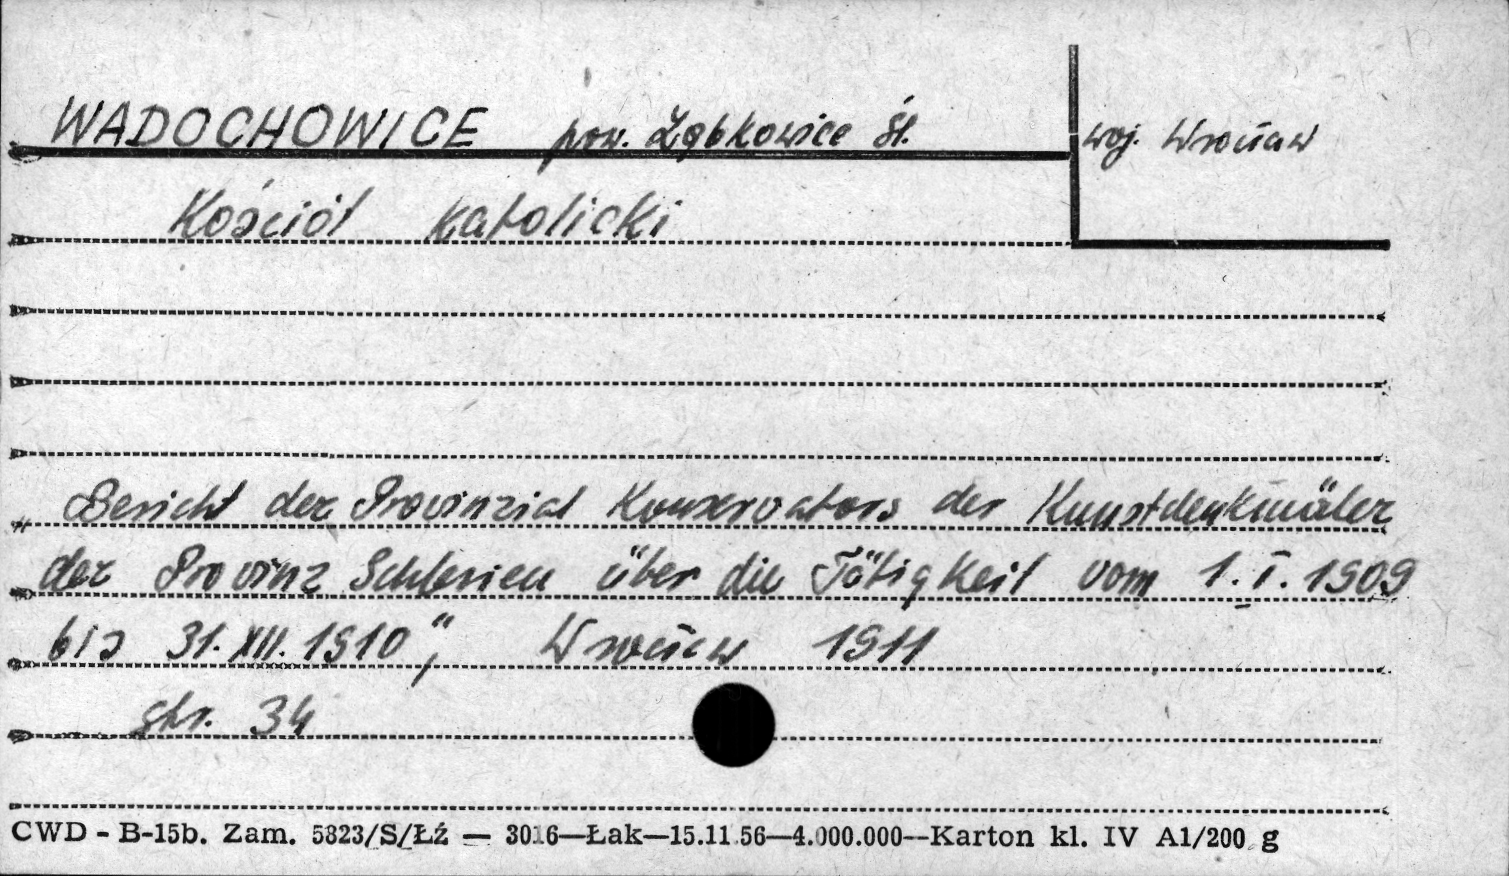 WADOCHOWICE pow. Ząbkowice Śl. woj. Wrocław
Kościół katolicki
„Bericht der Provinzial Konservators der Kunstdenkmäler
der Provinz Schlesien über die Tätigkeit vom 1.I.1909
bis 31.XII.1910", Wrocław 1911
str. 34
CWD - B-15b. Zam. 5823/S/Łź — 3016—Łak—15.11.56—4.000.000—Karton kl. IV A1/200 g